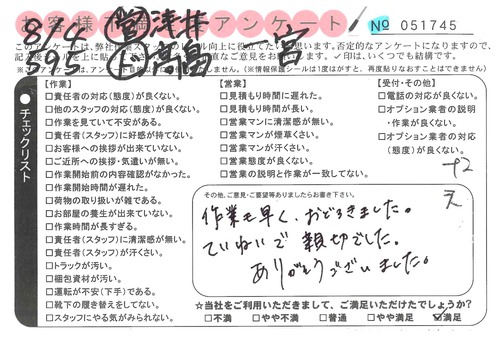 お客様ご満足アンケート No 051745
8/4 営 浅井
593 ド 高島 一宮
このアンケートは、弊社
向上に役立てたい
思います。否定的なアンケートになりますので、
記入後
直なご意見をお聞かせ下さい。✓印は、いくつでも結構です。
※このアンケートは、アンケート目的以外
ません。(※情報保護シールは1度はがすと、再度貼りなおすことはできません)
チェックリスト
【作業】
□責任者の対応(態度)が良くない。
□他のスタッフの対応(態度)が良くない。
□作業を見ていて不安がある。
□責任者(スタッフ)に好感が持てない。
□お客様への挨拶が出来ていない。
□ご近所への挨拶・気遣いが無い。
□作業開始前の内容確認がなかった。
□作業開始時間が遅れた。
□荷物の取り扱いが雑である。
□お部屋の養生が出来ていない。
□作業時間が長すぎる。
□責任者(スタッフ)に清潔感が無い。
□責任者(スタッフ)が汗くさい。
□トラックが汚い。
□梱包資材が汚い。
□運転が不安(下手)である。
□靴下の履き替えをしてない。
□スタッフにやる気がみられない。
【営業】
□見積もり時間に遅れた。
□見積もり時間が長い。
□営業マンに清潔感が無い。
□営業マンが煙草くさい。
□営業マンが汗くさい。
□営業態度が良くない。
□営業の説明と作業が一致してない。
【受付・その他】
□電話の対応が良くない。
□オプション業者の説明
・作業が良くない。
□オプション業者の対応
(態度)が良くない。
+2
その他、ご意見・ご要望等ありましたらお書き下さい。
作業も早く、おどろきました。
ていねいで親切でした。
ありがとうございました。
☆当社をご利用いただきまして、ご満足いただけたでしょうか?
□不満 □やや不満 □普通 □やや満足 ☑満足